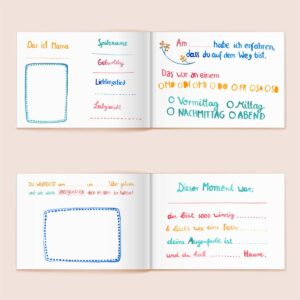 Das ist Mama
Spitzname
Geburtstag
Lieblingslied
Am habe ich erfahren,
dass du auf dem Weg bist.
Das war an einem
O MO O DI O MI O DO O FR O SA O SO
O Vormittag O Mittag
O NACHMITTAG O ABEND
DU WURDEST am um Uhr geboren
und wir waren
Dieser Moment war:
du bist 1000 winzig
& leicht wie eine Feder
deine Augenfarbe ist
und du hast Haare.